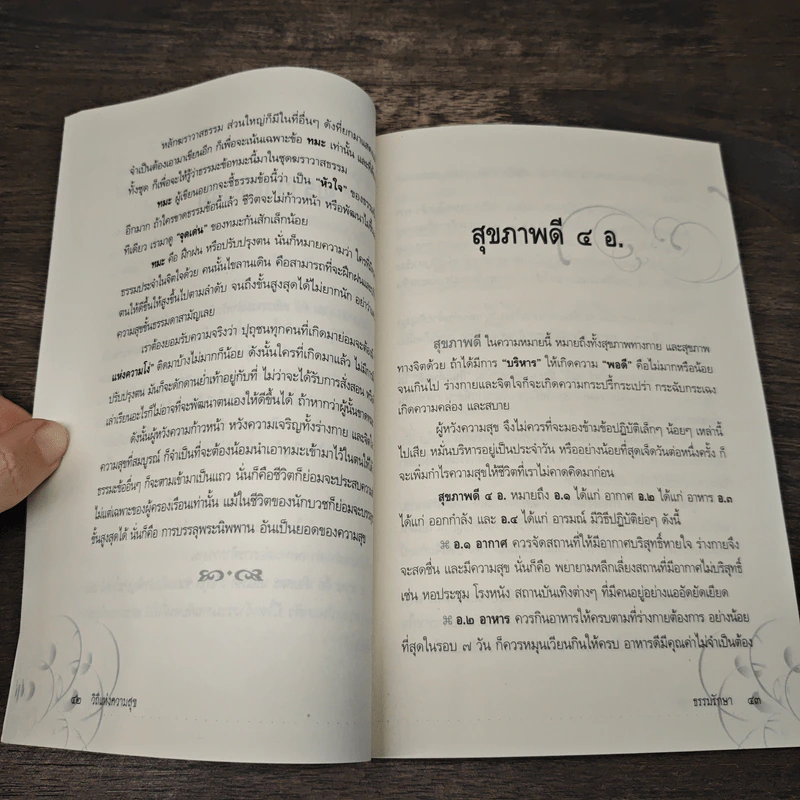 หลักฆราวาสธรรม ส่วนใหญ่ก็มีในที่อื่นๆ ดังที่ยกมาแสดง
จำเป็นต้องเอามาเขียนอีก ก็เพื่อจะเน้นเฉพาะข้อ ทมะ เท่านั้น
ทั้งชุด ก็เพื่อจะให้รู้ว่าธรรมะข้อทมะนี้มาในชุดฆราวาสธรรม
ทมะ ผู้เขียนอยากจะชี้ธรรมข้อนี้ว่า เป็น "หัวใจ"
อีกมาก ถ้าใครขาดธรรมข้อนี้แล้ว ชีวิตจะไม่ก้าวหน้า หรือพัฒนาไม่ขึ้น
ทีเดียว เรามาดู "จุดเด่น" ของทมะกันสักเล็กน้อย
ทมะ คือ ฝึกฝน หรือปรับปรุงตน นั่นก็หมายความว่า ใครที่มี
ธรรมประจำในจิตใจด้วย คนนั้นไซลานเดิน คือสามารถที่จะฝึกฝน
ตนให้ดีขึ้นให้สูงขึ้นไปตามลำดับ จนถึงขั้นสูงสุดได้ไม่ยากนัก
ความสุขขั้นธรรมดาสามัญเลย
เราต้องยอมรับความจริงว่า ปุถุชนทุกคนที่เกิดมาย่อมจะต้อง
แห่งความโง่" ติดมาบ้างไม่มากก็น้อย ดังนั้นใครที่เกิดมาแล้ว
ปรับปรุงตน มันก็จะดักดานย่ำเท้าอยู่กับที่ ไม่ว่าจะได้รับการสั่งสอน
เล่าเรียนอะไรก็ไม่อาจที่จะพัฒนาตนเองให้ดีขึ้นได้ ถ้าหากว่าผู้นั้นขาด
ดังนั้นผู้หวังความก้าวหน้า หวังความเจริญทั้งร่างกาย และจิตใจ
ความสุขที่สมบูรณ์ ก็จำเป็นที่จะต้องน้อมนำเอาทมะเข้ามาไว้ในตนให้ได้
ธรรมะข้ออื่นๆ ก็จะตามเข้ามาเป็นแถว นั่นก็คือชีวิตก็ย่อมจะประสบความ
ไม่แต่เฉพาะของผู้ครองเรือนเท่านั้น แม้ในชีวิตของนักบวชก็ย่อมจะบรรลุ
ขั้นสูงสุดได้ นั่นก็คือ การบรรลุพระนิพพาน อันเป็นยอดของความสุข
๔๒ วิถีแห่งความสุข
สุขภาพดี ๔ อ.
สุขภาพดี ในความหมายนี้ หมายถึงทั้งสุขภาพทางกาย และสุขภาพ
ทางจิตด้วย ถ้าได้มีการ "บริหาร" ให้เกิดความ "พอดี" คือไม่มากหรือน้อย
จนเกินไป ร่างกายและจิตใจก็จะเกิดความกระปรี้กระเปร่า กระฉับกระเฉง
เกิดความคล่อง และสบาย
ผู้หวังความสุข จึงไม่ควรที่จะมองข้ามข้อปฏิบัติเล็กๆ น้อยๆ เหล่านี้
ไปเสีย หมั่นบริหารอยู่เป็นประจำวัน หรืออย่างน้อยที่สุดเจ็ดวันต่อหนึ่งครั้ง ก็
จะเพิ่มกำไรความสุขให้ชีวิตที่เราไม่คาดคิดมาก่อน
สุขภาพดี ๔ อ. หมายถึง อ.๑ ได้แก่ อากาศ อ.๒ ได้แก่ อาหาร อ.๓
ได้แก่ ออกกำลัง และ อ.๔ ได้แก่ อารมณ์ มีวิธีปฏิบัติย่อๆ ดังนี้
⌘ อ.๑ อากาศ ควรจัดสถานที่ให้มีอากาศบริสุทธิ์หายใจ ร่างกายจึง
จะสดชื่น และมีความสุข นั่นก็คือ พยายามหลีกเลี่ยงสถานที่มีอากาศไม่บริสุทธิ์
เช่น หอประชุม โรงหนัง สถานบันเทิงต่างๆ ที่มีคนอยู่อย่างแออัดยัดเยียด
⌘ อ.๒ อาหาร ควรกินอาหารให้ครบตามที่ร่างกายต้องการ อย่างน้อย
ที่สุดในรอบ ๗ วัน ก็ควรหมุนเวียนกินให้ครบ อาหารดีมีคุณค่าไม่จำเป็นต้อง
ธรรมรักษา ๔๓